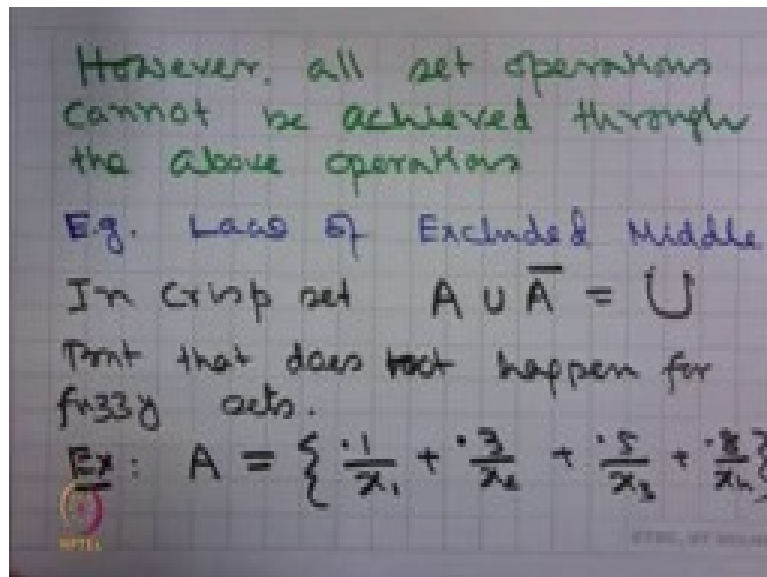 However, all set operations
cannot be achieved through
the above operations
E.g. Laws of Excluded Middle
In crisp set A ∪ A̅ = U
But that does not happen for
fuzzy sets.
Ex: A = { .1/x₁ + .3/x₂ + .5/x₃ + .8/x₄ }
NPTEL